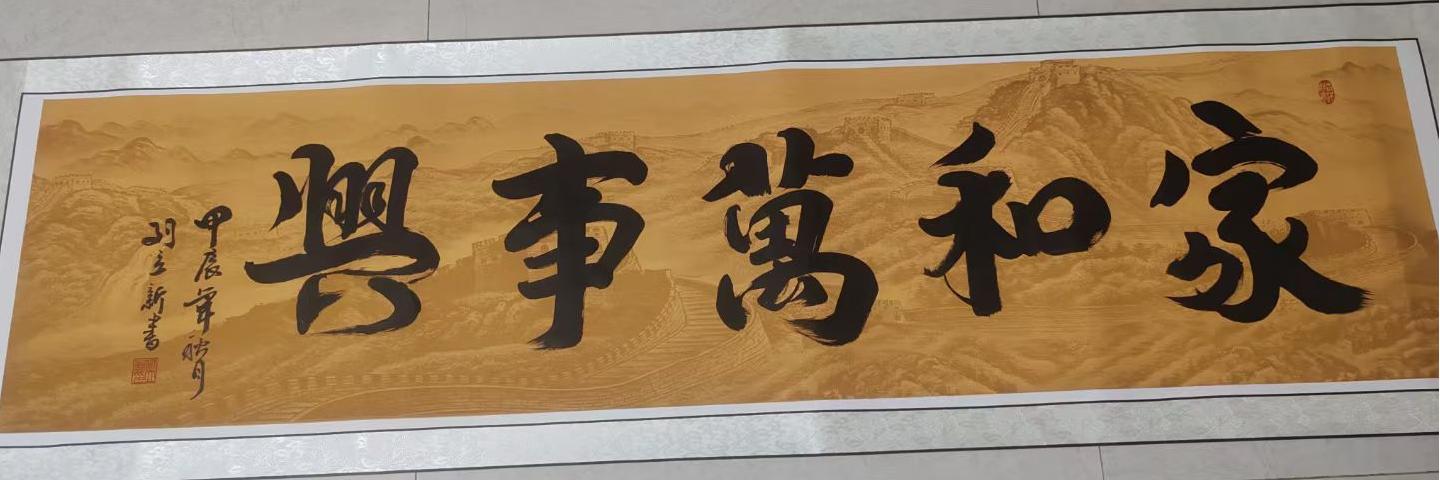 家和萬事興
甲辰年秋月
立新書